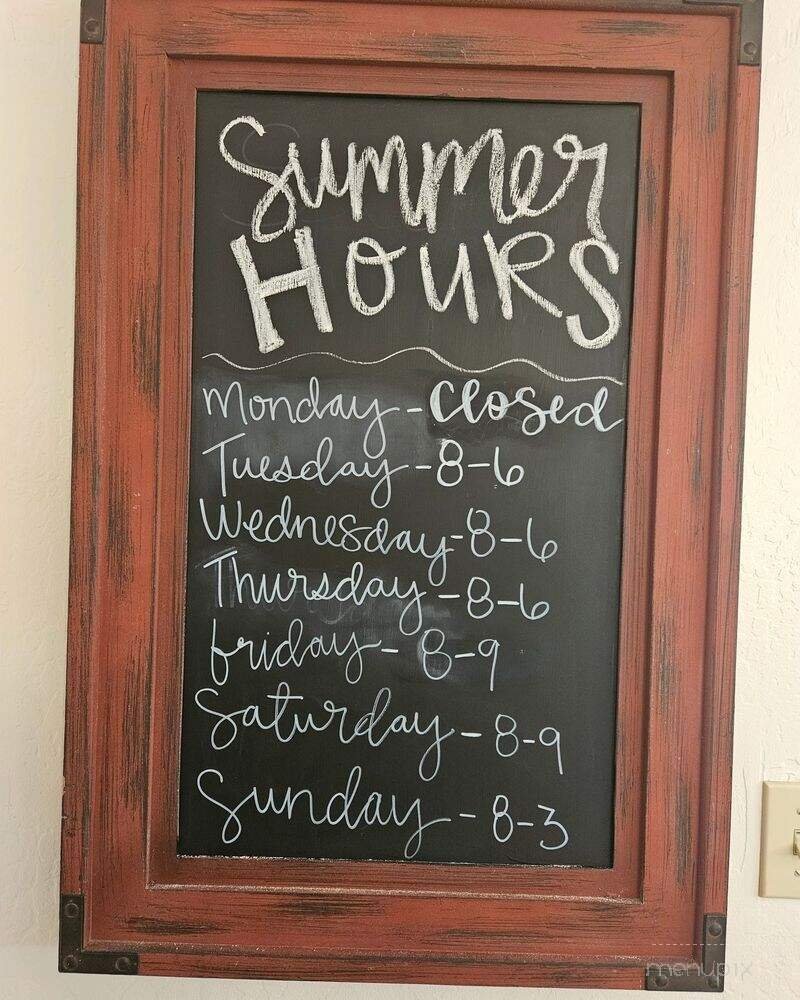 Summer
HOURS
Monday - Closed
Tuesday - 8-6
Wednesday - 8-6
Thursday - 8-6
friday - 8-9
Saturday - 8-9
Sunday - 8-3
menupix